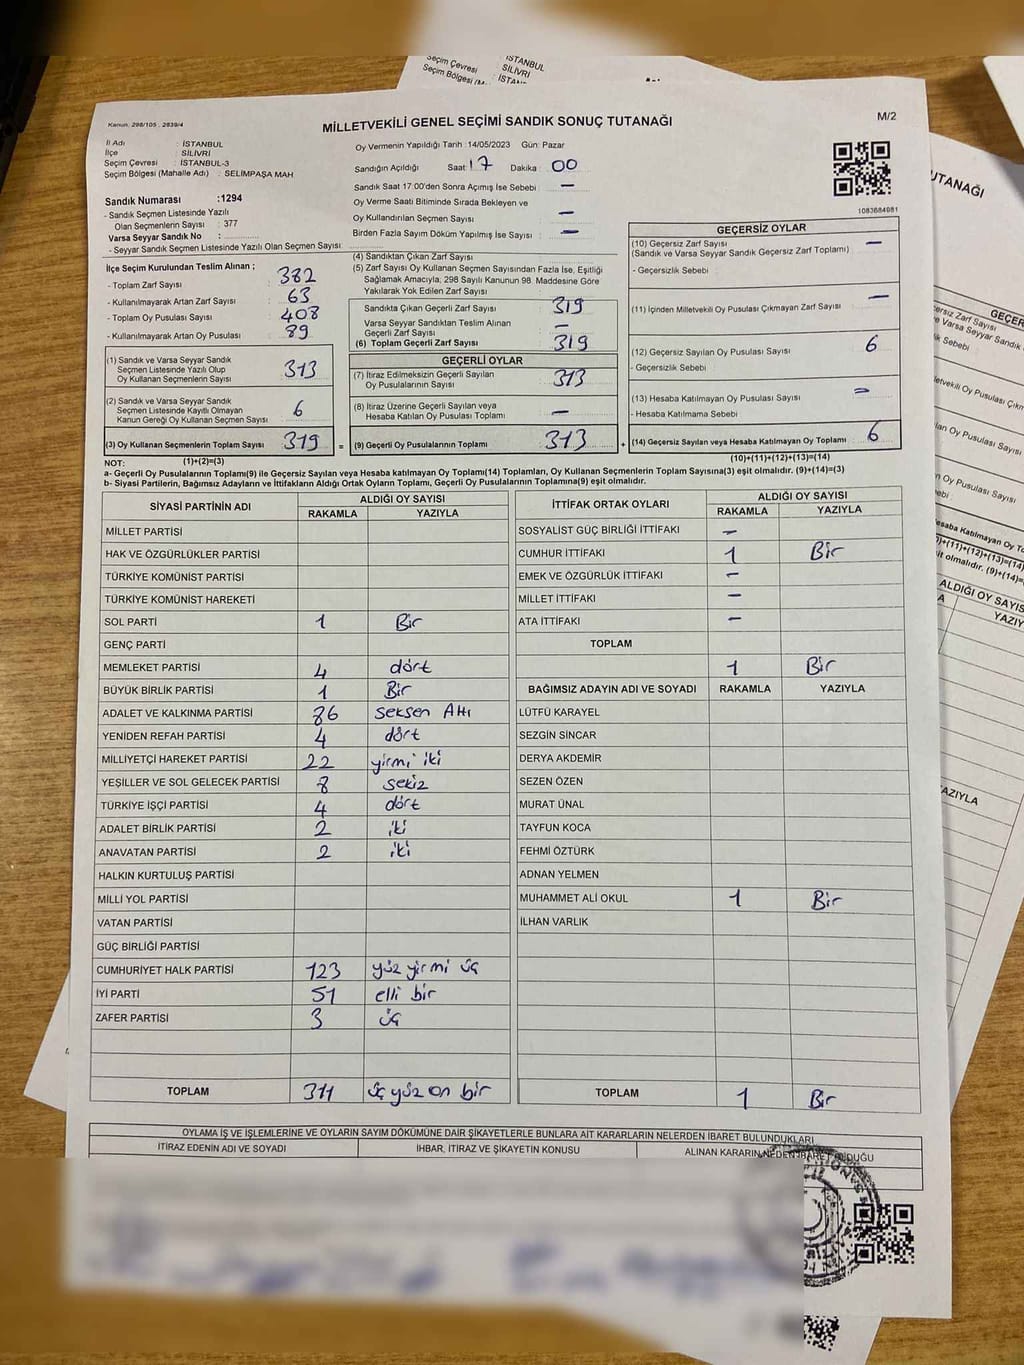 Seçim Çevresi : İSTANBUL
Seçim Bölgesi SİLİVRİ
Kanun: 298/105 , 2839/4
MİLLETVEKİLİ GENEL SEÇİMİ SANDIK SONUÇ TUTANAĞI
M/2
İl Adı : İSTANBUL
İlçe : SİLİVRİ
Seçim Çevresi : İSTANBUL-3
Seçim Bölgesi (Mahalle Adı) : SELİMPAŞA MAH
Oy Vermenin Yapıldığı Tarih :14/05/2023 Gün: Pazar
Sandığın Açıldığı Saat 17 Dakika 00
Sandık Saat 17:00'den Sonra Açımış İse Sebebi : –
Oy Verme Saati Bitiminde Sırada Bekleyen ve
Oy Kullandırılan Seçmen Sayısı : –
Birden Fazla Sayım Döküm Yapılmış İse Sayısı : –
Sandık Numarası :1294
- Sandık Seçmen Listesinde Yazılı
Olan Seçmenlerin Sayısı : 377
Varsa Seyyar Sandık No :
- Seyyar Sandık Seçmen Listesinde Yazılı Olan Seçmen Sayısı:
1083684981
İlçe Seçim Kurulundan Teslim Alınan ;
- Toplam Zarf Sayısı : 382
- Kullanılmayarak Artan Zarf Sayısı : 63
- Toplam Oy Pusulası Sayısı : 408
- Kullanılmayarak Artan Oy Pusulası : 89
(1) Sandık ve Varsa Seyyar Sandık
Seçmen Listesinde Yazılı Olup
Oy Kullanan Seçmenlerin Sayısı : 313
(2) Sandık ve Varsa Seyyar Sandık
Seçmen Listesinde Kayıtlı Olmayan
Kanun Gereği Oy Kullanan Seçmen Sayısı : 6
(3) Oy Kullanan Seçmenlerin Toplam Sayısı : 319
(4) Sandıktan Çıkan Zarf Sayısı
(5) Zarf Sayısı Oy Kullanan Seçmen Sayısından Fazla İse, Eşitliği
Sağlamak Amacıyla, 298 Sayılı Kanunun 98. Maddesine Göre
Yakılarak Yok Edilen Zarf Sayısı :
Sandıkta Çıkan Geçerli Zarf Sayısı : 319
Varsa Seyyar Sandıktan Teslim Alınan
Geçerli Zarf Sayısı : –
(6) Toplam Geçerli Zarf Sayısı : 319
GEÇERLİ OYLAR
(7) İtiraz Edilmeksizin Geçerli Sayılan
Oy Pusulalarının Sayısı : 313
(8) İtiraz Üzerine Geçerli Sayılan veya
Hesaba Katılan Oy Pusulası Toplamı : –
= (9) Geçerli Oy Pusulalarının Toplamı : 313
GEÇERSİZ OYLAR
(10) Geçersiz Zarf Sayısı : –
(Sandık ve Varsa Seyyar Sandık Geçersiz Zarf Toplamı)
- Geçersizlik Sebebi :
(11) İçinden Milletvekili Oy Pusulası Çıkmayan Zarf Sayısı : –
(12) Geçersiz Sayılan Oy Pusulası Sayısı : 6
- Geçersizlik Sebebi :
(13) Hesaba Katılmayan Oy Pusulası Sayısı : =
- Hesaba Katılmama Sebebi :
+ (14) Geçersiz Sayılan veya Hesaba Katılmayan Oy Toplamı : 6
NOT: (1)+(2)=(3)
(10)+(11)+(12)+(13)=(14)
a- Geçerli Oy Pusulalarının Toplamı(9) ile Geçersiz Sayılan veya Hesaba katılmayan Oy Toplamı(14) Toplamları, Oy Kullanan Seçmenlerin Toplam Sayısına(3) eşit olmalıdır. (9)+(14)=(3)
b- Siyasi Partilerin, Bağımsız Adayların ve İttifakların Aldığı Ortak Oyların Toplamı, Geçerli Oy Pusulalarının Toplamına(9) eşit olmalıdır.
SİYASİ PARTİNİN ADI ALDIĞI OY SAYISI
RAKAMLA YAZIYLA
MİLLET PARTİSİ
HAK VE ÖZGÜRLÜKLER PARTİSİ
TÜRKİYE KOMÜNİST PARTİSİ
TÜRKİYE KOMÜNİST HAREKETİ
SOL PARTİ 1 Bir
GENÇ PARTİ
MEMLEKET PARTİSİ 4 dört
BÜYÜK BİRLİK PARTİSİ 1 Bir
ADALET VE KALKINMA PARTİSİ 86 Seksen Altı
YENİDEN REFAH PARTİSİ 4 dört
MİLLİYETÇİ HAREKET PARTİSİ 22 yirmi iki
YEŞİLLER VE SOL GELECEK PARTİSİ 8 sekiz
TÜRKİYE İŞÇİ PARTİSİ 4 dört
ADALET BİRLİK PARTİSİ 2 iki
ANAVATAN PARTİSİ 2 iki
HALKIN KURTULUŞ PARTİSİ
MİLLİ YOL PARTİSİ
VATAN PARTİSİ
GÜÇ BİRLİĞİ PARTİSİ
CUMHURİYET HALK PARTİSİ 123 yüz yirmi üç
İYİ PARTİ 51 elli bir
ZAFER PARTİSİ 3 üç
TOPLAM 311 üç yüz on bir
İTTİFAK ORTAK OYLARI ALDIĞI OY SAYISI
RAKAMLA YAZIYLA
SOSYALİST GÜÇ BİRLİĞİ İTTİFAKI –
CUMHUR İTTİFAKI 1 Bir
EMEK VE ÖZGÜRLÜK İTTİFAKI –
MİLLET İTTİFAKI –
ATA İTTİFAKI –
TOPLAM
1 Bir
BAĞIMSIZ ADAYIN ADI VE SOYADI RAKAMLA YAZIYLA
LÜTFÜ KARAYEL
SEZGİN SİNCAR
DERYA AKDEMİR
SEZEN ÖZEN
MURAT ÜNAL
TAYFUN KOCA
FEHMİ ÖZTÜRK
ADNAN YELMEN
MUHAMMET ALİ OKUL 1 Bir
İLHAN VARLIK
TOPLAM 1 Bir
OYLAMA İŞ VE İŞLEMLERİNE VE OYLARIN SAYIM DÖKÜMÜNE DAİR ŞİKAYETLERLE BUNLARA AİT KARARLARIN NELERDEN İBARET BULUNDUKLARI
İTİRAZ EDENİN ADI VE SOYADI İHBAR, İTİRAZ VE ŞİKAYETİN KONUSU ALINAN KARARIN NEDEN İBARET OLDUĞU